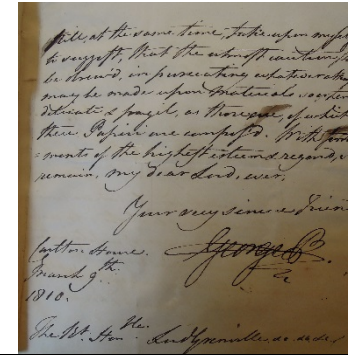 still, at the same time, take upon myself
to suggest, that the utmost caution
be observ'd, in prosecuting whatever
may be made upon Materials so
delicate & fragil, as those are, of which
these Papers are compos'd. With
-ments of the highest esteem & regard, I
remain, my dear Lord, ever,
Your very sincere Friend
George P.
Carlton House.
March 9th.
1810.
The Rt. Honble. Lord Grenville